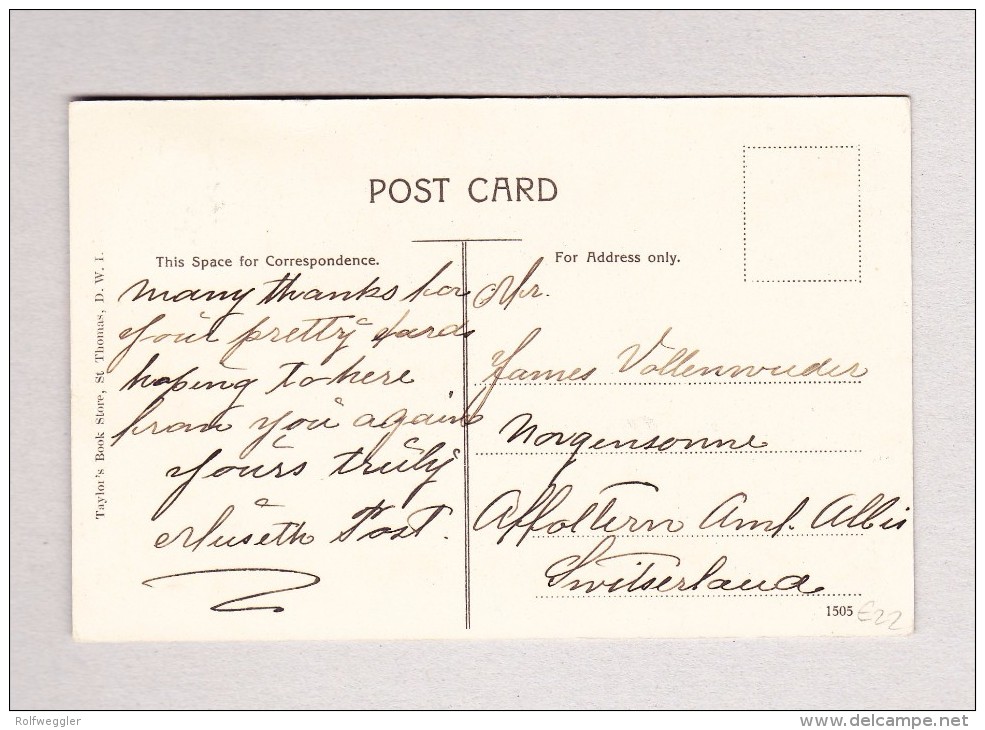 POST CARD
This Space for Correspondence.
For Address only.
Taylor's Book Store, St Thomas, D. W. I.
many thanks for
your pretty cards
hoping to here
from you again
yours truly
Post.
Mr.
James Vollenwuder
Morgensonne
Affoltern Amt. Albis
Switserland
1505
€22
Rolfweggler
www.delcampe.net